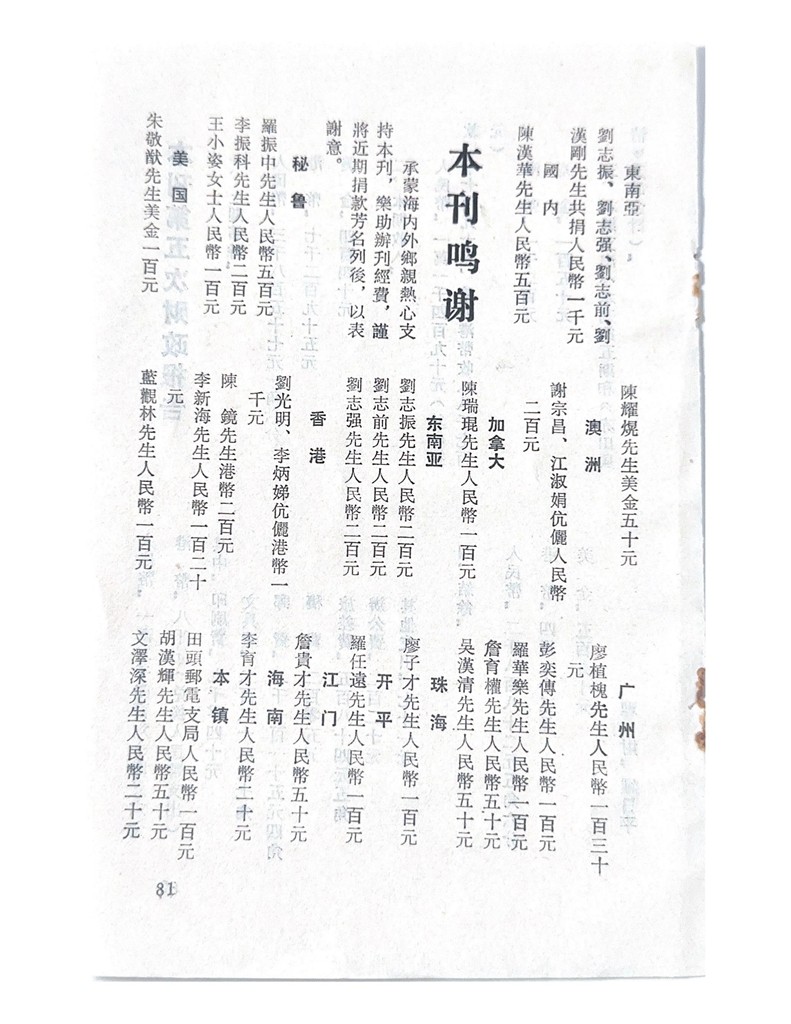 東南亞
劉志振、劉志强、劉志前、劉
漢剛先生共捐人民幣一千元
國内
陳漢華先生人民幣五百元
本刊鸣谢
承蒙海内外鄉親熱心支
持本刊，樂助辦刊經費，謹
將近期捐款芳名列後，以表
謝意。
秘鲁
羅振中先生人民幣五百元
李振科先生人民幣二百元
王小姿女士人民幣一百元
美国
朱敬猷先生美金一百元
陳耀焜先生美金五十元
澳洲
謝宗昌、江淑娟伉儷人民幣
二百元
加拿大
陳瑞琨先生人民幣一百元
东南亚
劉志振先生人民幣二百元
劉志前先生人民幣二百元
劉志强先生人民幣二百元
香港
劉光明、李炳娣伉儷港幣一
千元
陳鏡先生港幣二百元
李新海先生人民幣一百二十
元
藍觀林先生人民幣一百元
广州
廖植槐先生人民幣一百三十
元
彭奕傳先生人民幣一百元
羅華樂先生人民幣一百元
詹育權先生人民幣五十元
吴漢清先生人民幣五十元
珠海
廖子才先生人民幣一百元
开平
羅任遠先生人民幣一百元
江门
詹貴才先生人民幣五十元
海南
李育才先生人民幣二十元
本镇
田頭郵電支局人民幣一百元
胡漢輝先生人民幣五十元
文澤深先生人民幣二十元
81